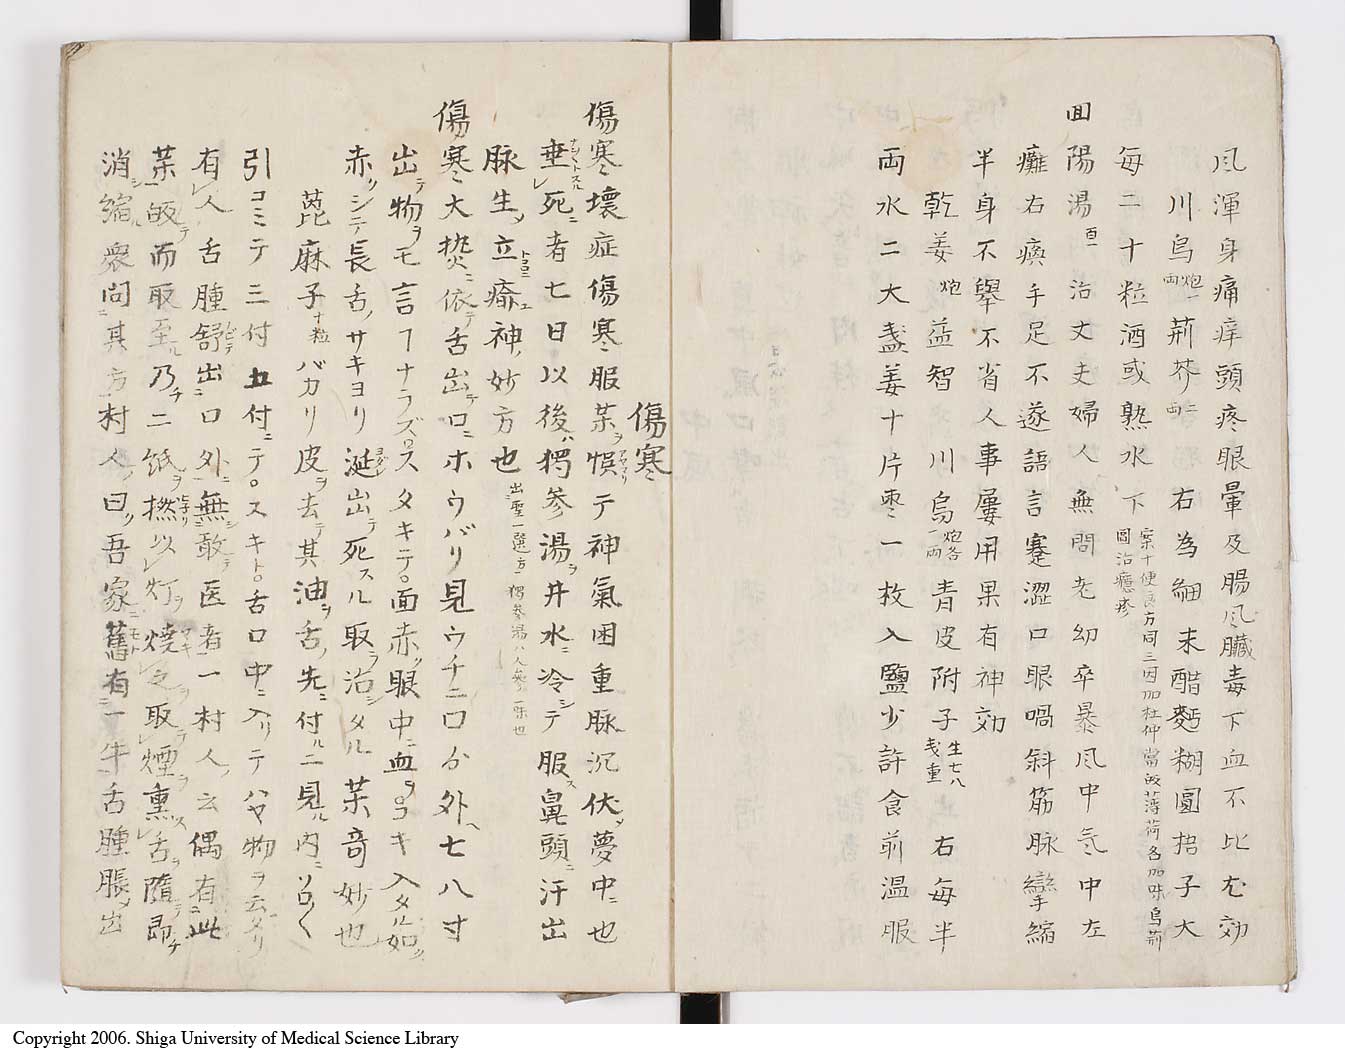 风渾身痛痒頭疼眼暈及腸风臓毒下血不比尤効
川烏炮一両 荊芥二両 右為細末醋麪糊圓梧子大
毎二十粒酒或熟水下 案十便良方同三因加杜仲當皈薄荷各加味烏荊圓治癮疹
回陽湯百一 治丈夫婦人無問老幼卒暴风中气中左
癱右瘓手足不遂語言蹇澀口眼喎斜筋脉攣縮
半身不擧不省人事屢用果有神効
乾姜炮 益智 川烏炮各一両 青皮 附子生七八戋重 右每半
両水二大盞姜十片棗一枚入鹽少許食前温服
傷寒
傷寒壞症傷寒服薬ヲ悮アヤマリテ神氣困重脉沉伏夢中ニ也
垂レ死ニ者七日以後ハ獨参湯ヲ井水ニ冷シテ服ス鼻頭ニ汗出
脉生ヲ立トコロニ瘉ユ神ノ妙方也 出聖一選方 獨参湯ハ人參一味也
傷寒大𤍠ニ依テ舌出テ口ニホウバリ見ウチニ口ゟ外ヘ七八寸
出テ物ヲモ言フヿナラズロスタキテ面赤ク眼中ニ血ヲコキ入タル如ク
赤クシテ長舌ノサキヨリ涎ヨダレ出テ死スル取ヲ治シタル薬奇妙也
萞麻子十粒バカリ皮ヲ去テ其油ヲ舌ノ先ニ付ル二見ル内ニ
引コミテ三付五付ニテスキト舌口中ニ入リテハヤ物ヲ云タリ
有レ人舌腫舒ビテ出ニ口外ニ無シ敢テ医者一村人ノ云偶有ニ此
薬一皈テ而取至ル乃チ二紙ヲ撚ヒネリ以レ灯ヲ燒マキレ之ヲ取テレ煙ヲ熏スレ舌ヲ隨テ即チ
消シ縮ル衆問ニ其方ノ村人ノ曰ク吾家ニ舊モト有ニ一牛舌腫脹ヲ出